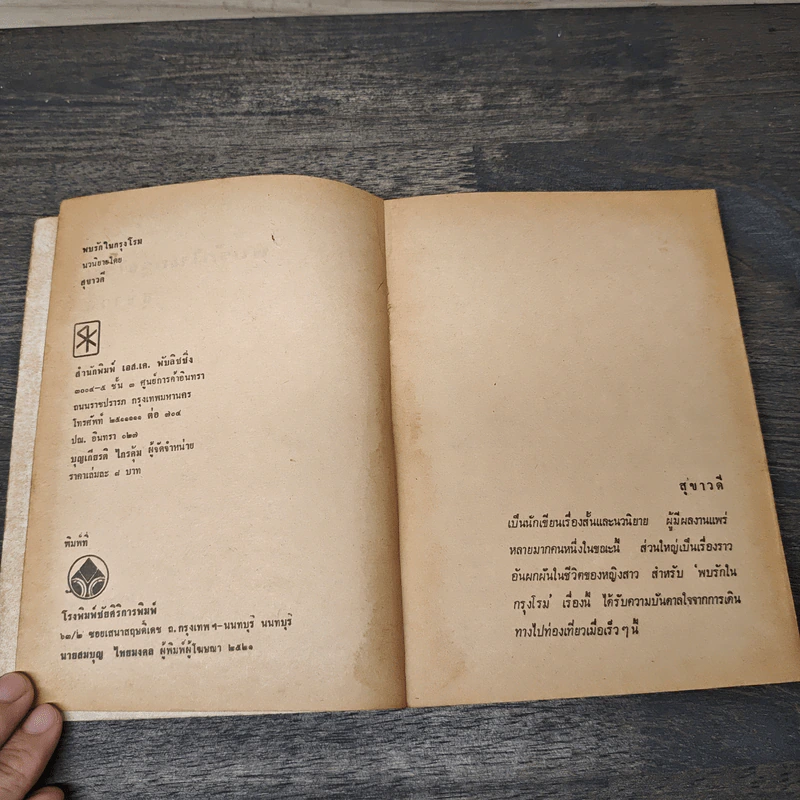 พบรักในกรุงโรม
นวนิยายโดย
สุขาวดี
สำนักพิมพ์ เอส.เค. พับลิชชิ่ง
๓๐๐๔-๕ ชั้น ๓ ศูนย์การค้าอินทรา
ถนนราชปรารภ กรุงเทพมหานคร
โทรศัพท์ ๒๕๑๑๑๑๑ ต่อ ๗๐๔
ปณ. อินทรา ๐๒๗
บุญเกียรติ ไกรคุ้ม ผู้จัดจำหน่าย
ราคาเล่มละ ๘ บาท
พิมพ์ที่
โรงพิมพ์ชัยศิริการพิมพ์
๖๓/๒ ซอยเสนาสฤษดิ์เดช ถ.กรุงเทพฯ-นนทบุรี นนทบุรี
นายสมบุญ ไทยมงคล ผู้พิมพ์ผู้โฆษณา ๒๕๒๑
สุขาวดี
เป็นนักเขียนเรื่องสั้นและนวนิยาย ผู้มีผลงานแพร่
หลายมากคนหนึ่งในขณะนี้ ส่วนใหญ่เป็นเรื่องราว
อันผกผันในชีวิตของหญิงสาว สำหรับ 'พบรักใน
กรุงโรม' เรื่องนี้ ได้รับความบันดาลใจจากการเดิน
ทางไปท่องเที่ยวเมื่อเร็วๆนี้